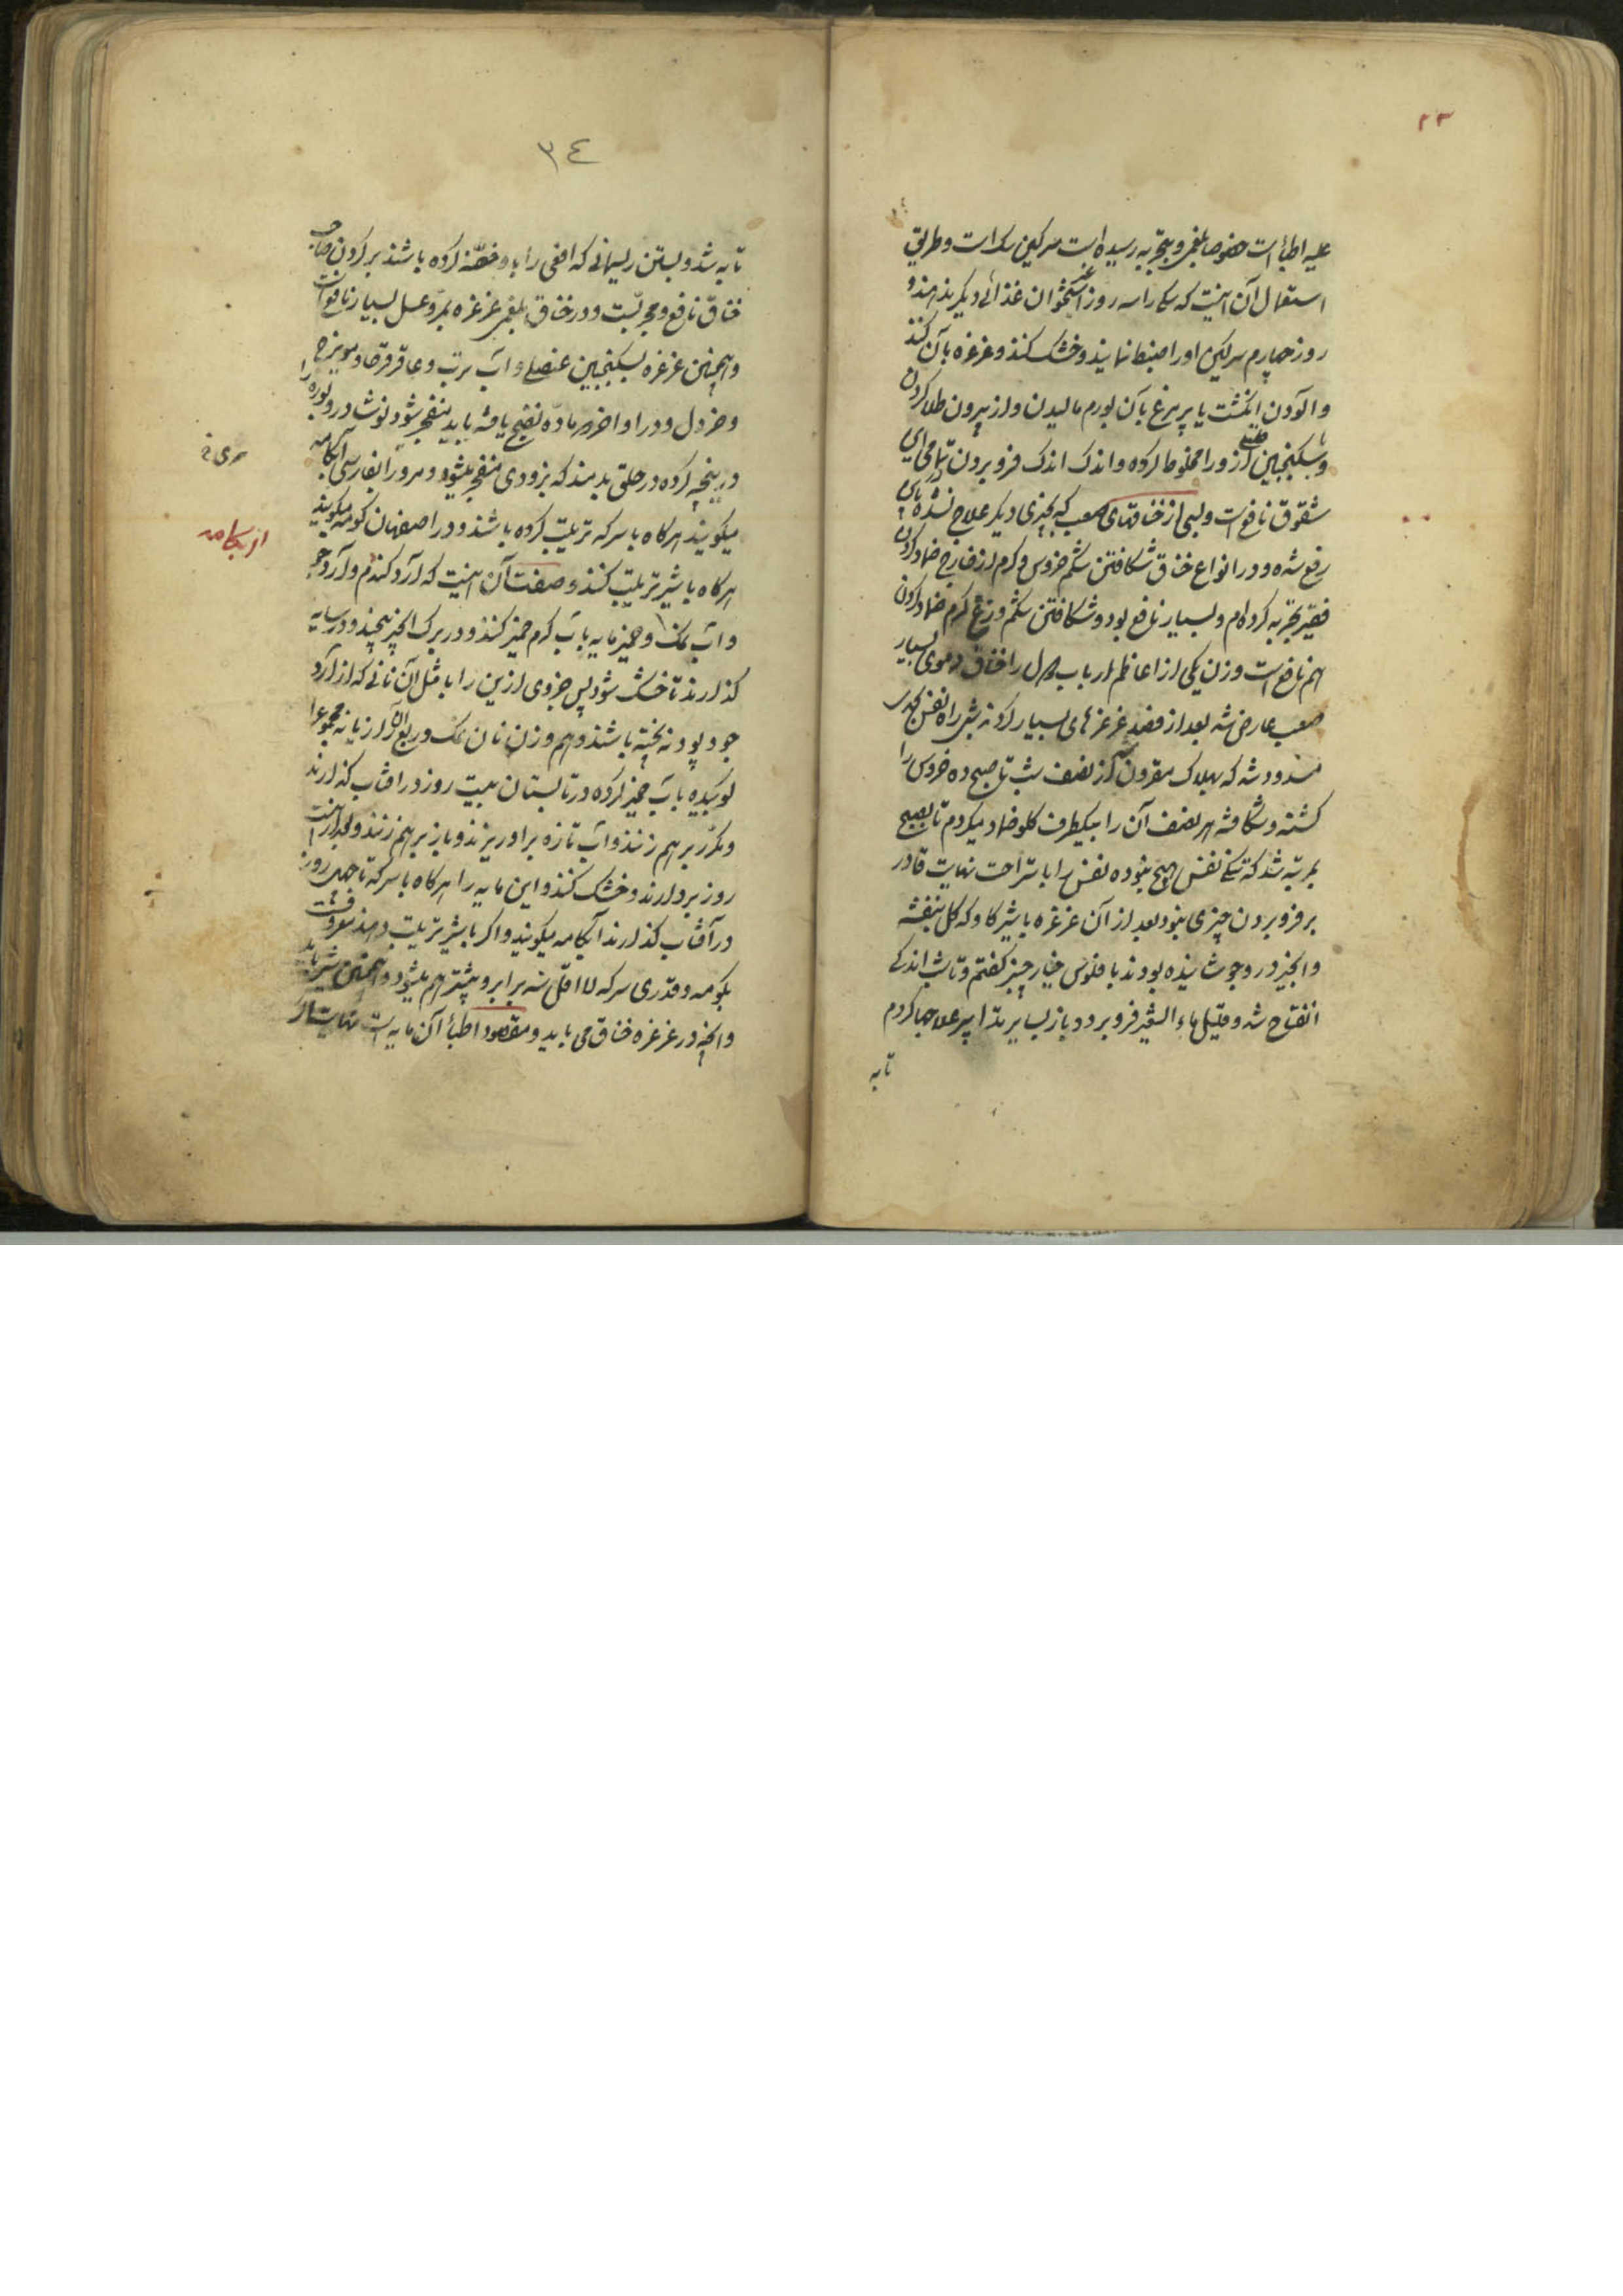 ۲۳
علیه اطباست خصوصا بلغمی و بتجربه رسیده است سرکین سک است و طریق
استعمال آن اینست که سک را سه روز غیر استخوان غذائی دیکر ندهند و
روز چهارم سرکین او را ضبط نمایند و خشک کنند و غرغره بآن کنند
و آلودن انکشت یا پر مرغ بآن بورم مالیدن و از بیرون طلا کردن
و با سکنجبین از زورا مخلوط کرده و اندک اندک فرو بردن
شقوق نافع است و بسی از خناقهای صعب که بچیزی دیکر علاج نشده باین
رفع شده و در انواع خناق شکافتن شکم خروس و کرم از خارج ضماد کردن
فقیر تجربه کرده‌ام و بسیار نافع بود و شکافتن شکم وزغ کرم ضماد کردن
هم نافع است و زن یکی از اعاظم ارباب را خناق دموی بسیار
صعب عارض شد بعد از فصد غرغرهای بسیار کردند بشب راه نفس
مسدود شد که بهلاک مقرون شد از نصف شب تا صبح ده خروس را
کشته و شکافته هر نصف آن را بیکطرف کلو ضماد میکردم تا بصبح
بمرتبه شد که تنکی نفس هیچ نبود و نفس را باستراحت نهایت قادر
بر فرو بردن چیزی نبود بعد از آن غرغره با شیر کاو که کل بنفشه
و انجیر در و جوشانیده بودند با فلوس خیار چنبر کفتم و تا شب اندکی
انفتاح شد و قلیلی ماء الشعیر فرو برد و باز بسایر تدابیر علاجها کردم
تا به
۳٤
تا به شد و بستن ریسمانی که افعی را باو خفه کرده باشند بر کردن صاحب
خناق نافع و مجربست و در خناق بلغمی غرغره بمری و عسل بسیار نافع است
و همچنین غرغره بسکنجبین عنصلی و آب ترب و عاقرقرحا و مویزج
و خردل و در اواخر هر ماده نضج یافته باید منفجر شود نوشادر و بوره را
در پنجه کرده در حلق بدمند که بزودی منفجر میشود و مری را بفارسی آبکامه
مری خ
میکویند هرکاه با سرکه تربیت کرده باشند و در اصفهان کومه میکویند
از بکامه
هرکاه با شیر تربیت کنند و صفت آن اینست که آرد کندم و آرد جو
و آب نمک و خمیرمایه بآب کرم خمیر کنند و در برک انجیر پیچند و در سایه
کذارند تا خشک شود پس جزوی ازین را با مثل آن نانی که از آرد
جو و پودنه پخته باشند و هم وزن نان نمک و ربع آن رازیانه مجموعا
کوبیده بآب خمیر کرده در تابستان بیست روز در آفتاب کذارند
و مکرر بر هم زنند و آب تازه بر او ریزند و باز بر هم زنند و بعد از بیست
روز بردارند و خشک کنند و این مایه را هرکاه با سرکه تا چهل روز
در آفتاب کذارند آبکامه میکویند و اکر با شیر تربیت دهند معروفست
بکومه و قدری سرکه لااقل سه برابر و بیشتر هم میشود و همچنین شیر باید
و آنچه در غرغره خناق می باید و مقصود اطبا آن مایه است